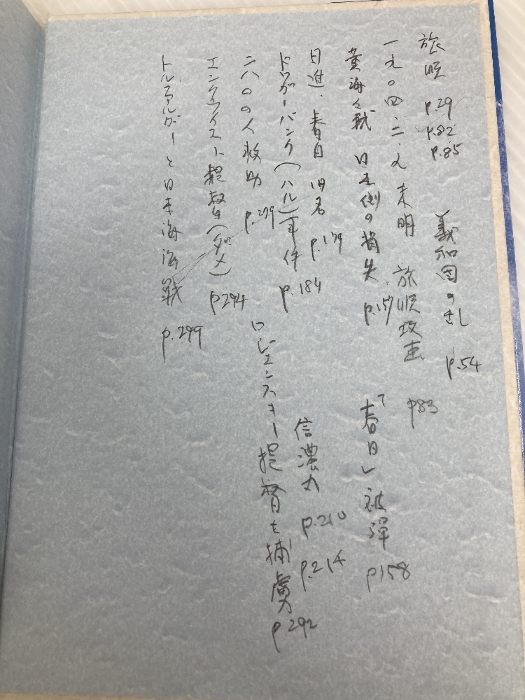 旅順 p.29 p.82 p.85
義和団の乱 p.54
一九〇四・二・九 未明 旅順攻撃 p83
黄海々戦 日本側の損失 p.157
「春日」被弾 p158
日進・春日 旧名 p.179
信濃丸 p.210 p.214
ドッガーバンク(ハル)事件 p.184
ロジェンスキー提督も捕虜 p292
二八〇〇人救助 p.279
エンクウィスト提督 p294
トラファルガーと日本海海戦 p.299